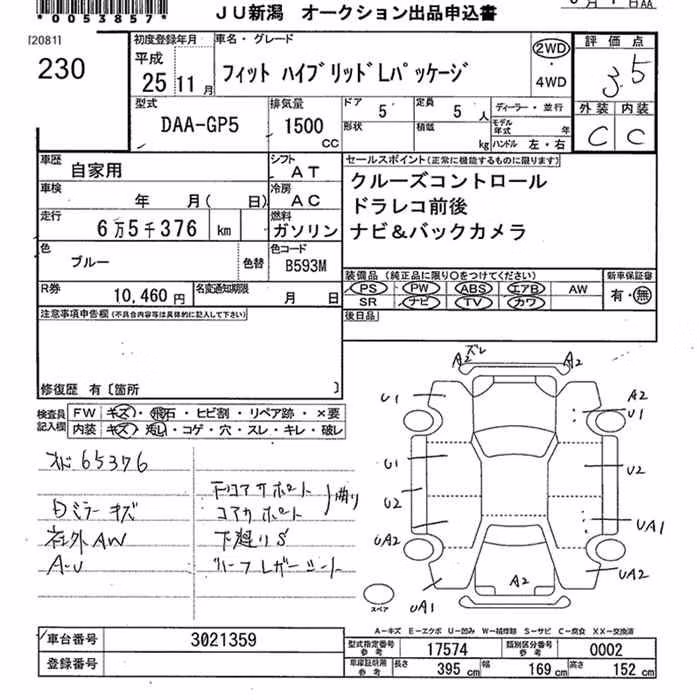 *0053857*
JU新潟 オークション出品申込書
[20811
230
初度登録年月
平成
25 11月
車名・グレード
フィット ハイブリッドLパッケージ
2WD
・
4WD
評価点
3.5
外装 内装
C C
型式
DAA-GP5
排気量
1500
CC
ドア
5
定員
5人
形状
積載
kg
ディーラー・並行
モデル年式 年
ハンドル 左・右
車歴
自家用
シフト
AT
車検
年 月( 日)
冷房
AC
走行
6万5千376 km
燃料
ガソリン
色
ブルー
色替
色コード
B593M
R券
10,460円
名変通知期限
月 日
セールスポイント(正常に機能するものに限ります)
クルーズコントロール
ドラレコ前後
ナビ&バックカメラ
装備品(純正品に限り○をつけてください)
PS PW ABS エアB AW
SR ナビ TV カワ
新車保証書
有・無
後日品
注意事項申告欄(不具合内容等は具体的に記入して下さい)
修復歴 有〔箇所 〕
検査員記入欄
FW キズ・飛石・ヒビ割・リペア跡・×要
内装 キズ・汚し・コゲ・穴・スレ・キレ・破レ
65376
ミラーキズ
社外AW
A-U
下コアサポート
コアサポート
曲り
下廻りS
ハーフレザーシート
A2 ズレ A2
U1 A2
U1
U1 U2
U2
UA2 UA1
UA1 A2 UA2
スペア
A-キズ E-エクボ U-凹み W-補修跡 S-サビ C-腐食 XX-交換済
車台番号 3021359
登録番号
型式指定番号 参考 17574
類別区分番号 参考 0002
車庫証明用 参考 長さ 395 cm 幅 169 cm 高さ 152 cm